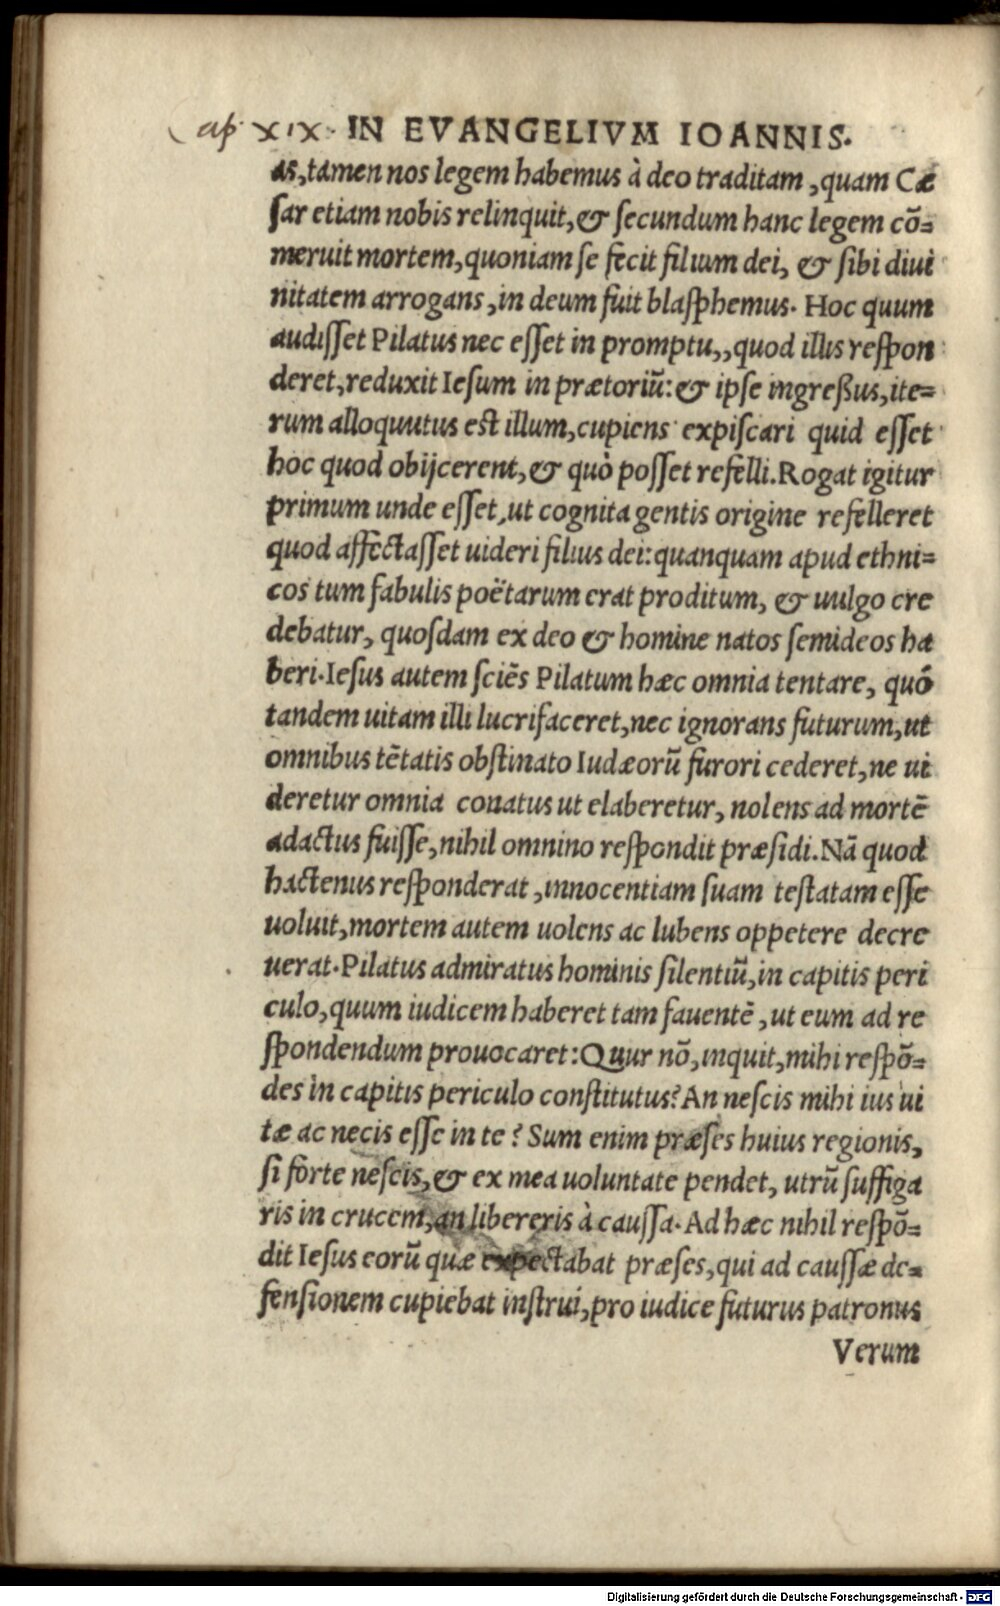 Cap. XIX. IN EVANGELIVM IOANNIS.
as, tamen nos legem habemus à deo traditam, quam Cæ
ſar etiam nobis relinquit, & ſecundum hanc legem cõ=
meruit mortem, quoniam ſe fecit filium dei, & ſibi diui
nitatem arrogans, in deum fuit blaſphemus. Hoc quum
audiſſet Pilatus nec eſſet in promptu,, quod illis reſpon
deret, reduxit Ieſum in prætoriũ: & ipſe ingreßus, ite=
rum alloquutus eſt illum, cupiens expiſcari quid eſſet
hoc quod obijcerent, & quò poſſet refelli. Rogat igitur
primum unde eſſet, ut cognita gentis origine refelleret
quod affectaſſet uideri filius dei: quanquam apud ethni=
cos tum fabulis poëtarum erat proditum, & uulgo cre
debatur, quoſdam ex deo & homine natos ſemideos ha
beri. Ieſus autem ſciẽs Pilatum hæc omnia tentare, quó
tandem uitam illi lucrifaceret, nec ignorans futurum, ut
omnibus tẽtatis obſtinato Iudæorũ furori cederet, ne ui
deretur omnia conatus ut elaberetur, nolens ad mortẽ
adactus fuiſſe, nihil omnino reſpondit præſidi. Nã quod
hactenus reſponderat, innocentiam ſuam teſtatam eſſe
uoluit, mortem autem uolens ac lubens oppetere decre
uerat. Pilatus admiratus hominis ſilentiũ, in capitis peri
culo, quum iudicem haberet tam fauentẽ, ut eum ad re
ſpondendum prouocaret: Quur nõ, inquit, mihi reſpõ=
des in capitis periculo conſtitutus? An neſcis mihi ius ui
tæ ac necis eſſe in te? Sum enim præſes huius regionis,
ſi forte neſcis, & ex mea uoluntate pendet, utrũ ſuffiga
ris in crucem, an libereris à cauſſa. Ad hæc nihil reſpõ=
dit Ieſus eorũ quæ expectabat præſes, qui ad cauſſæ de=
fenſionem cupiebat inſtrui, pro iudice futurus patronus
Verum
Digitalisierung gefördert durch die Deutsche Forschungsgemeinschaft - DFG